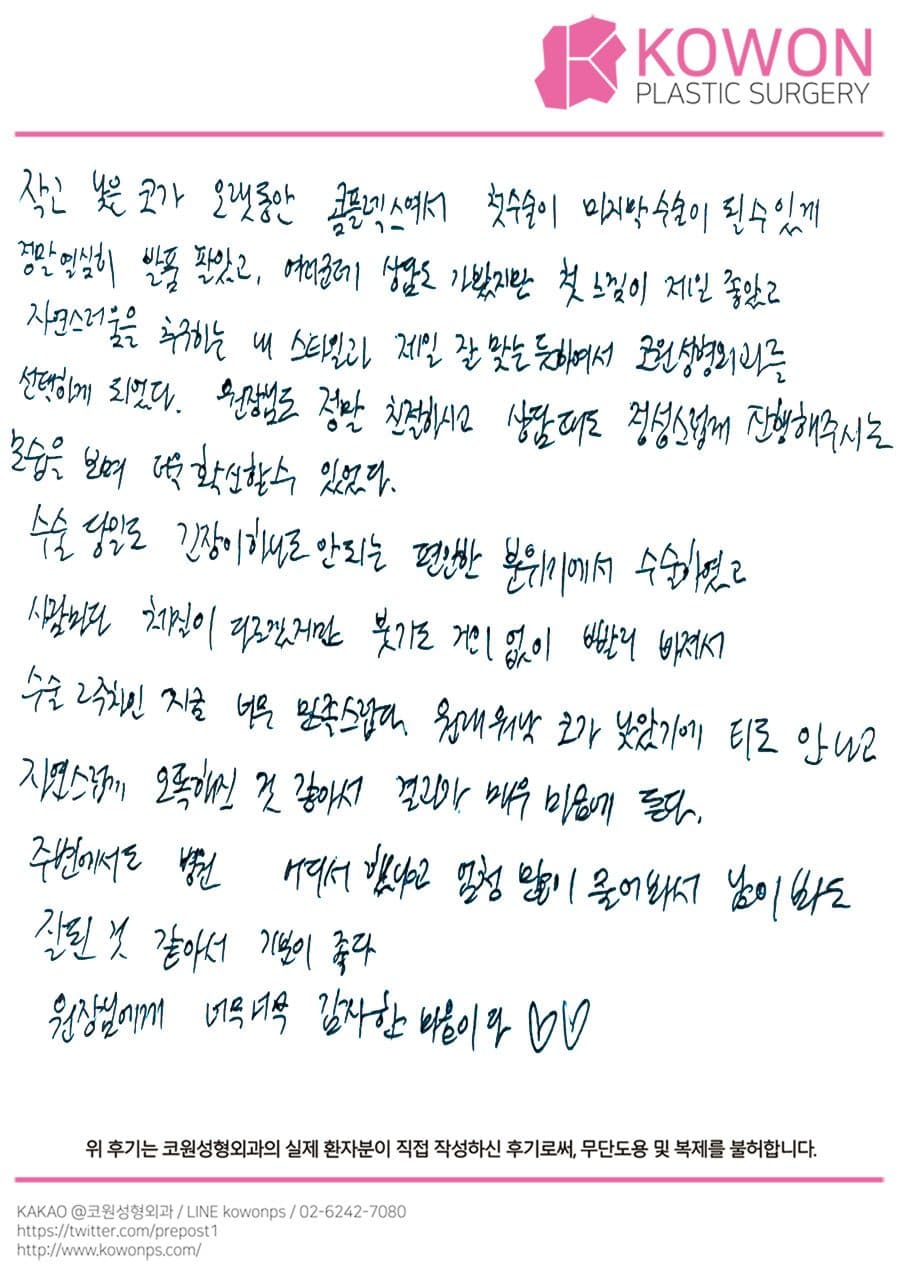 KOWON
PLASTIC SURGERY
작고 낮은 코가 오랫동안 콤플렉스여서 첫수술이 마지막 수술이 될 수 있게
정말 열심히 발품 팔았고, 여러군데 상담도 가봤지만 첫 느낌이 제일 좋았고
자연스러움을 추구하는 내 스타일과 제일 잘 맞는 듯하여서 코원성형외과를
선택하게 되었다. 원장님도 정말 친절하시고 상담때도 정성스럽게 진행해주시는
모습을 보며 더욱 확신할 수 있었다.
수술 당일도 긴장이 하나도 안되는 편안한 분위기에서 수술하였고
사람마다 체질이 다르겠지만 붓기도 거의 없이 빨리 빠져서
수술 2주차인 지금 너무 만족스럽다. 원래 워낙 코가 낮았기에 티도 안나고
자연스럽게 오똑해진 것 같아서 결과가 매우 마음에 든다.
주변에서도 병원 어디서 했냐고 엄청 많이 물어봐서 남이 봐도
잘된 것 같아서 기분이 좋다
원장님에게 너무너무 감사한 마음이다 ♡♡
위 후기는 코원성형외과의 실제 환자분이 직접 작성하신 후기로써, 무단도용 및 복제를 불허합니다.
KAKAO @코원성형외과 / LINE kowonps / 02-6242-7080
https://twitter.com/prepost1
http://www.kowonps.com/